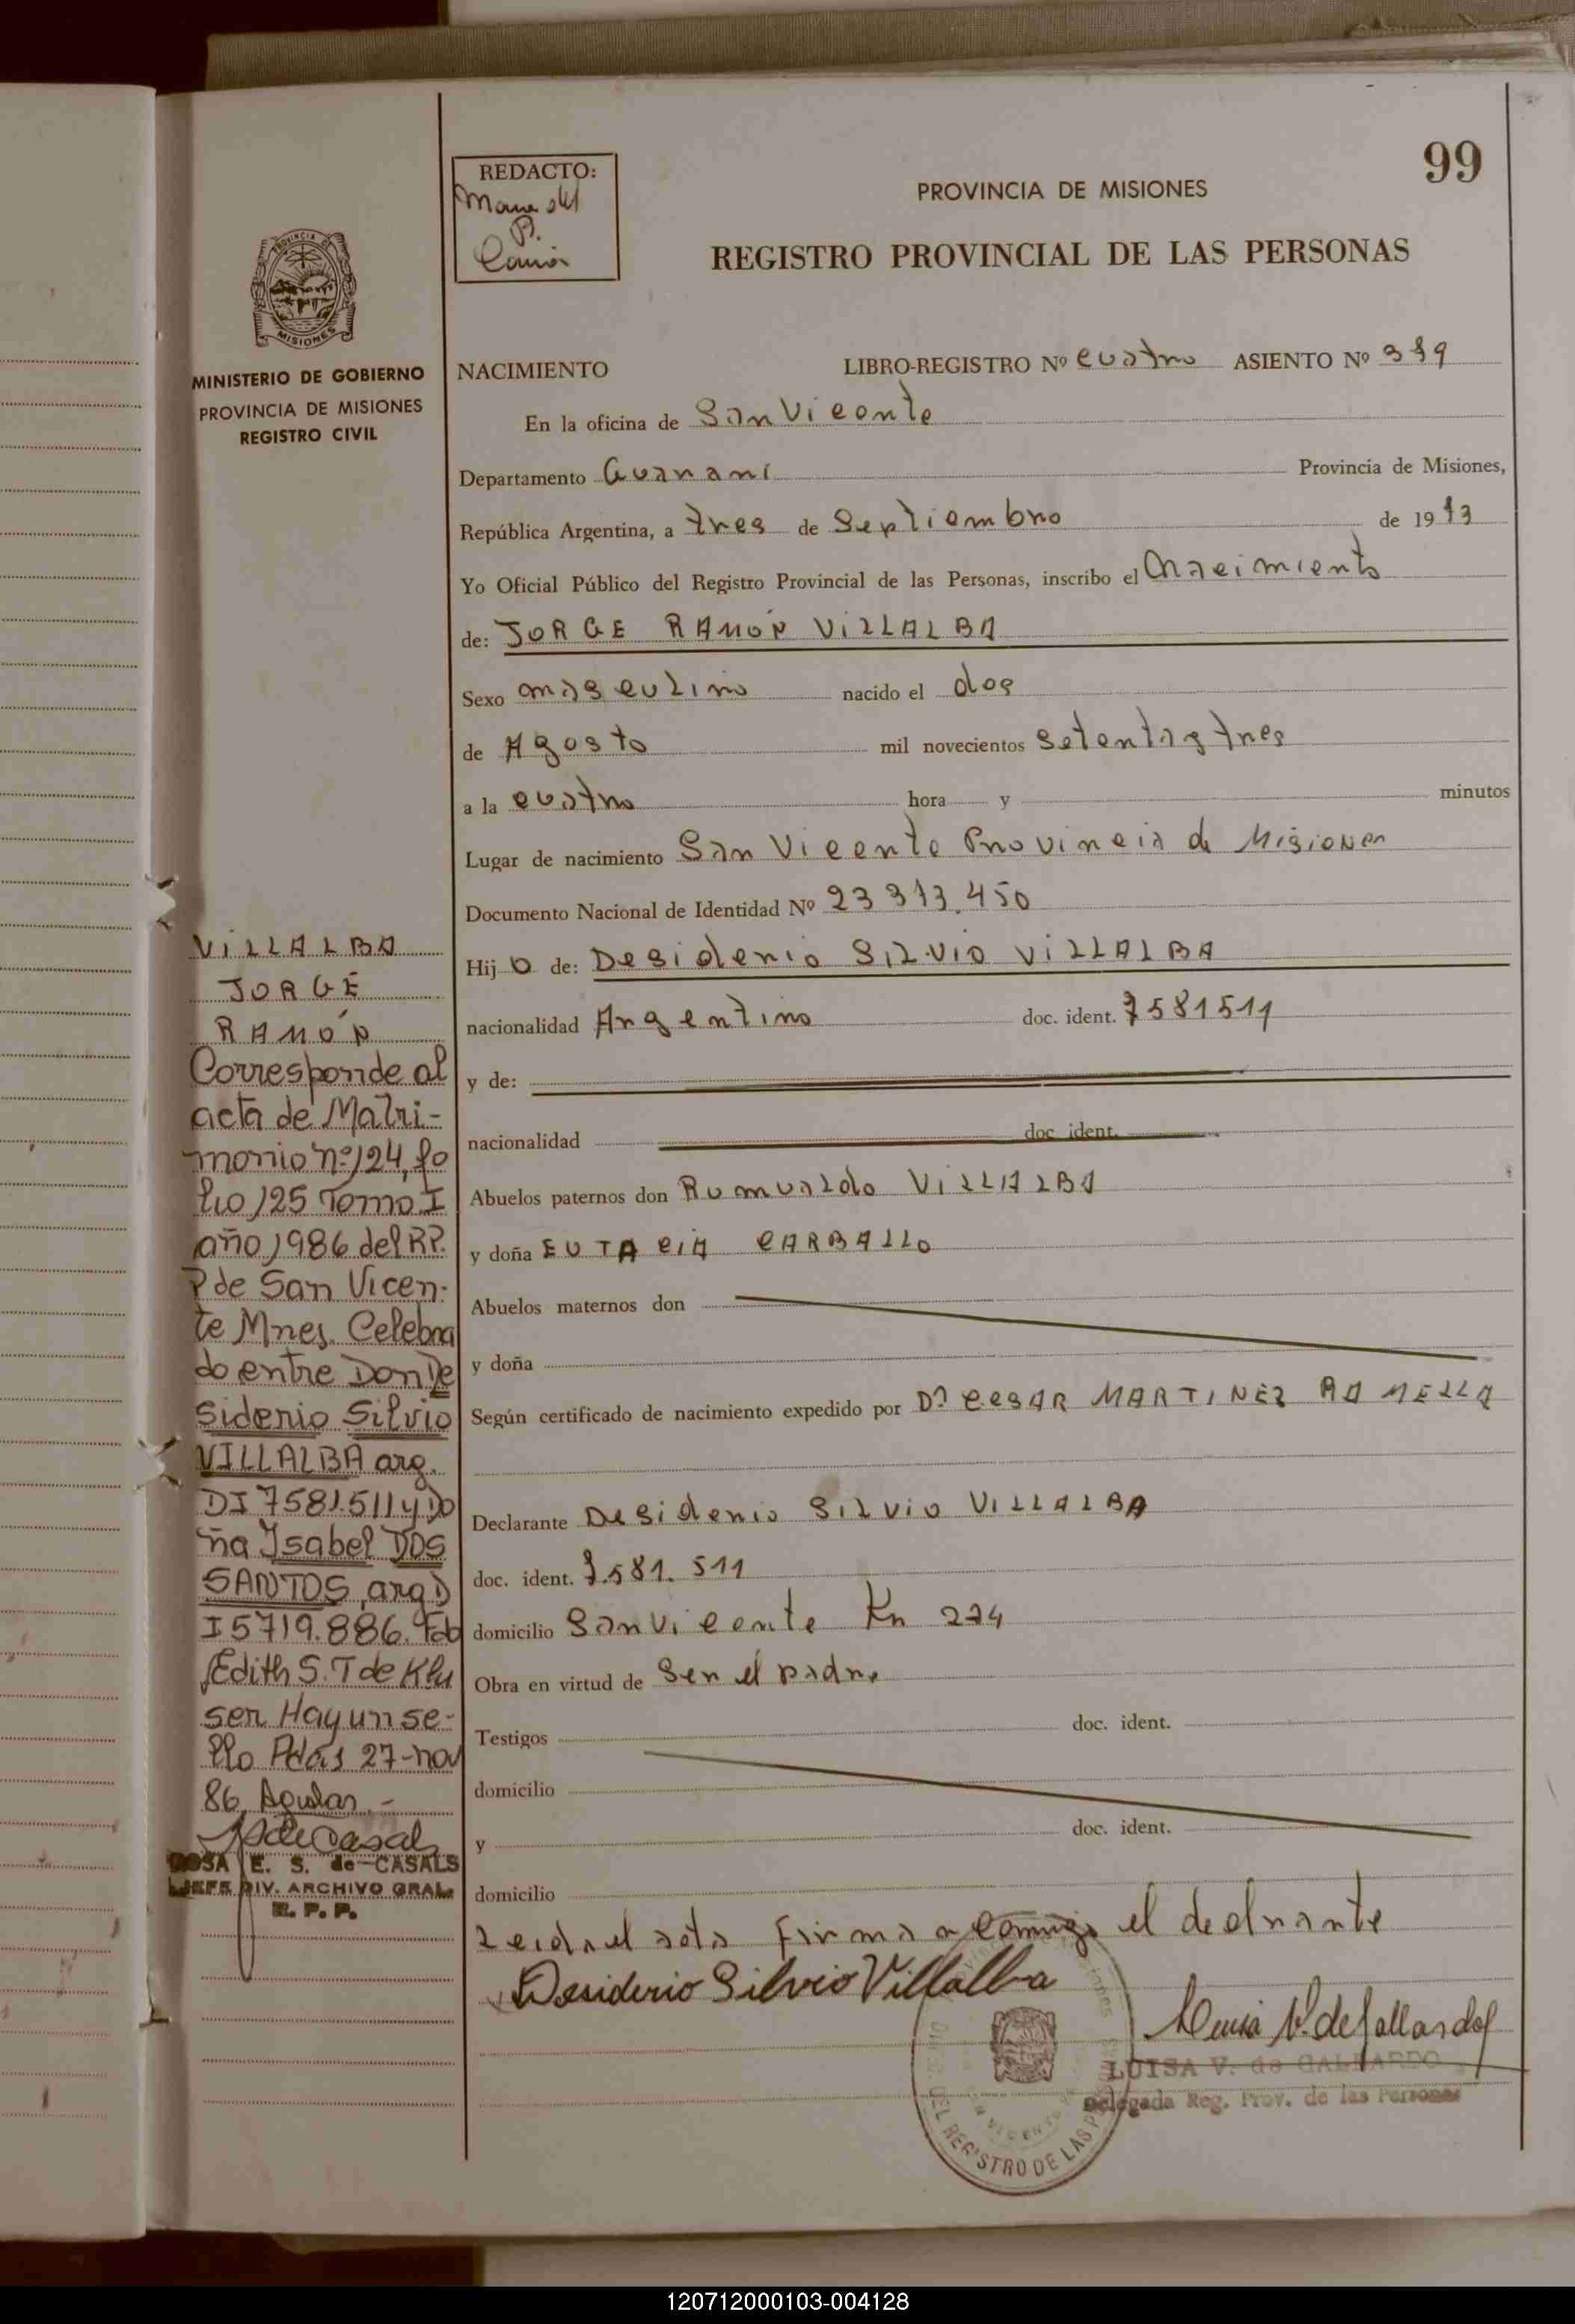 99
REDACTO:
PROVINCIA DE MISIONES
REGISTRO PROVINCIAL DE LAS PERSONAS
MISIONES
MINISTERIO DE GOBIERNO
PROVINCIA DE MISIONES
REGISTRO CIVIL
NACIMIENTO LIBRO-REGISTRO Nº cuatro ASIENTO Nº
En la oficina de San Vicente
Departamento Guaraní Provincia de Misiones,
República Argentina, a tres de Septiembre de 1973
Yo Oficial Público del Registro Provincial de las Personas, inscribo el Nacimiento
de: JORGE RAMÓN VILLALBA
Sexo masculino nacido el dos
de Agosto mil novecientos setenta y tres
a la cuatro hora y minutos
Lugar de nacimiento San Vicente Provincia de Misiones
Documento Nacional de Identidad Nº 23 373.450
Hijo de: Desiderio SILVIO VILLALBA
nacionalidad Argentino doc. ident. 7581511
y de:
nacionalidad doc. ident.
Abuelos paternos don Romualdo VILLALBA
y doña EUTACIA CARBALLO
Abuelos maternos don
y doña
Según certificado de nacimiento expedido por Dr CESAR MARTINEZ RAMELLA
Declarante Desiderio SILVIO VILLALBA
doc. ident. 7.581.511
domicilio San Vicente Km 224
Obra en virtud de Ser el padre
Testigos doc. ident.
domicilio
y doc. ident.
domicilio
Leida el acta firma conmigo el declarante
Desiderio Silvio Villalba
Luisa V. de Gallardo
LUISA V. de GALLARDO
Delegada Reg. Prov. de las Personas
DEL REGISTRO DE LAS
SAN VICENTE
VILLALBA
JORGE
RAMÓN
Corresponde al
acta de Matri-
monio nº 124, fo
lio 125 Tomo I
año 1986 del R.P.
P de San Vicen-
te Mnes. Celebra
do entre Don De
siderio Silvio
VILLALBA arg.
DI 7581.511 y Do
ña Isabel DOS
SANTOS, arg D
I 5719.886. Fdo
Edith S. T de Klu
ser Hay un se-
llo Pdas 27-nov
86
ROSA E. S. de CASALS
JEFE DIV. ARCHIVO GRAL.
R. P. P.
120712000103-004128